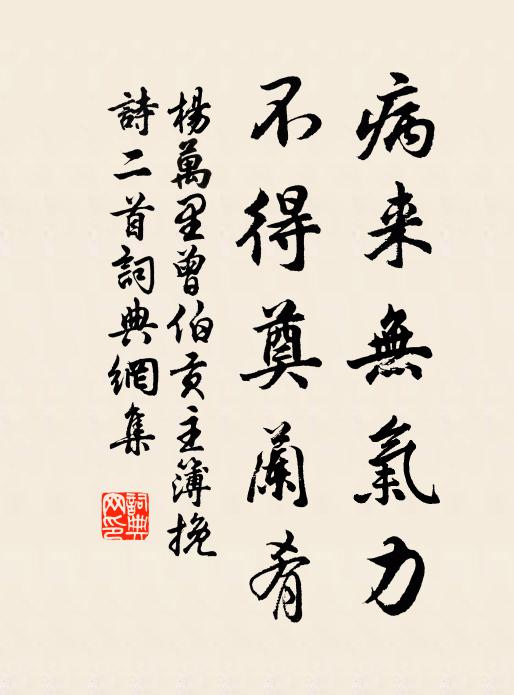 病来無氣力
不得奠蘭肴
楊萬里曾伯贡主簿挽
詩二首詞典網集
詞典
网印